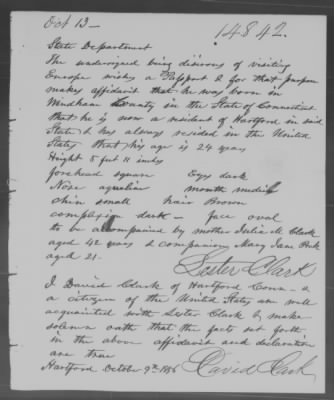 Oct 13 —
14842.
State Department
The undersigned being desirous of visiting
Europe wishes a Passport & for that purpose
makes affidavit that he was born in
Windham County in the State of Connecticut
that he is now a resident of Hartford in said
State & has always resided in the United
States that his age is 24 years
Hight 5 feet 11 inches
forehead square Eyes dark
Nose aquelin mouth medium
chin small hair Brown
complexion dark — face oval
to be accompanied by mother Julia M. Clark
aged 42 years & companion Mary Jane
aged 21.
Lester Clark
I David Clark of Hartford Conn &
a citizen of the United States am well
acquainted with Lester Clark & make
solemn oath that the facts set forth
in the above affidavit and declaration
are true
Hartford October 9th David Clark